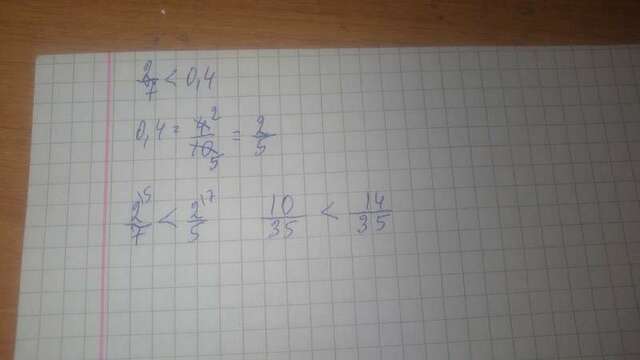 2/7 < 0,4
0,4 = 4²/10₅ = 2/5
2^15/7 < 2^17/5 10/35 < 14/35